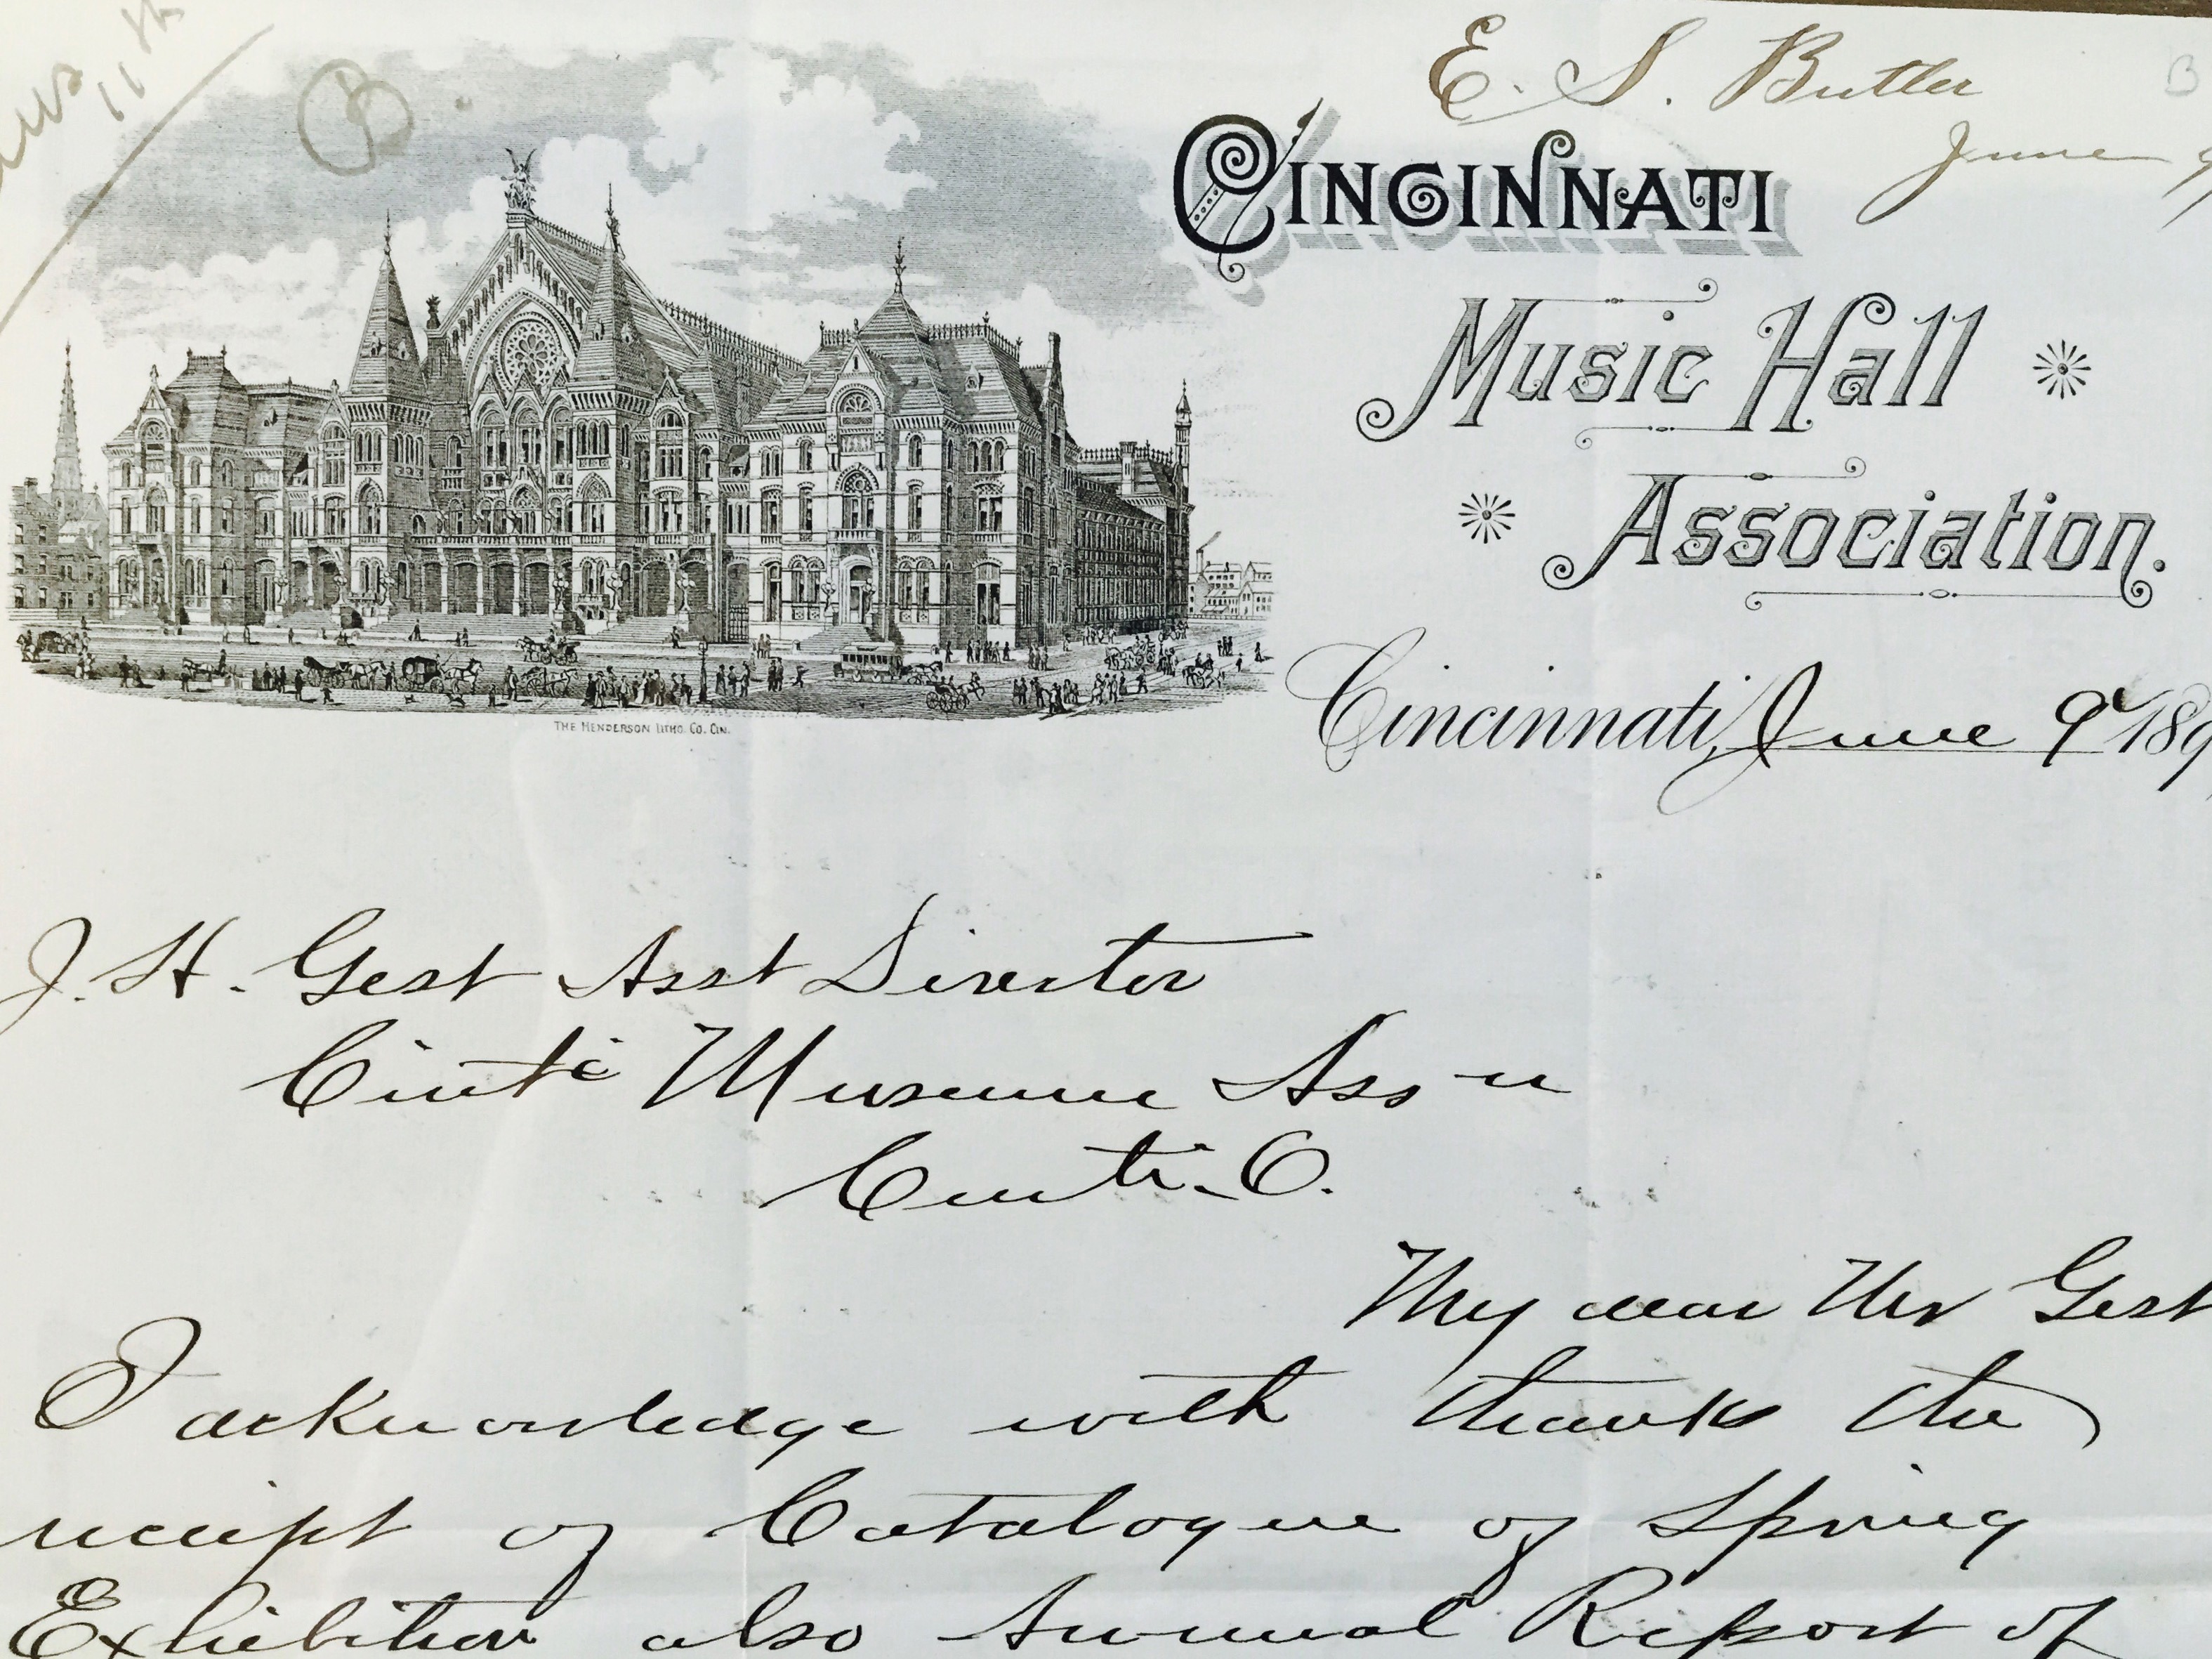 11th
B
E. S. Butler
June 9
B
CINCINNATI
Music Hall
Association.
THE HENDERSON LITHO. CO. CIN.
Cincinnati, June 9" 189
J. H. Gest Asst Director
Cinti Museum Ass-n
Cinti-O.
My dear Mr Gest
I acknowledge with thanks the
receipt of Catalogue of Spring
Exhibition also Annual Report of